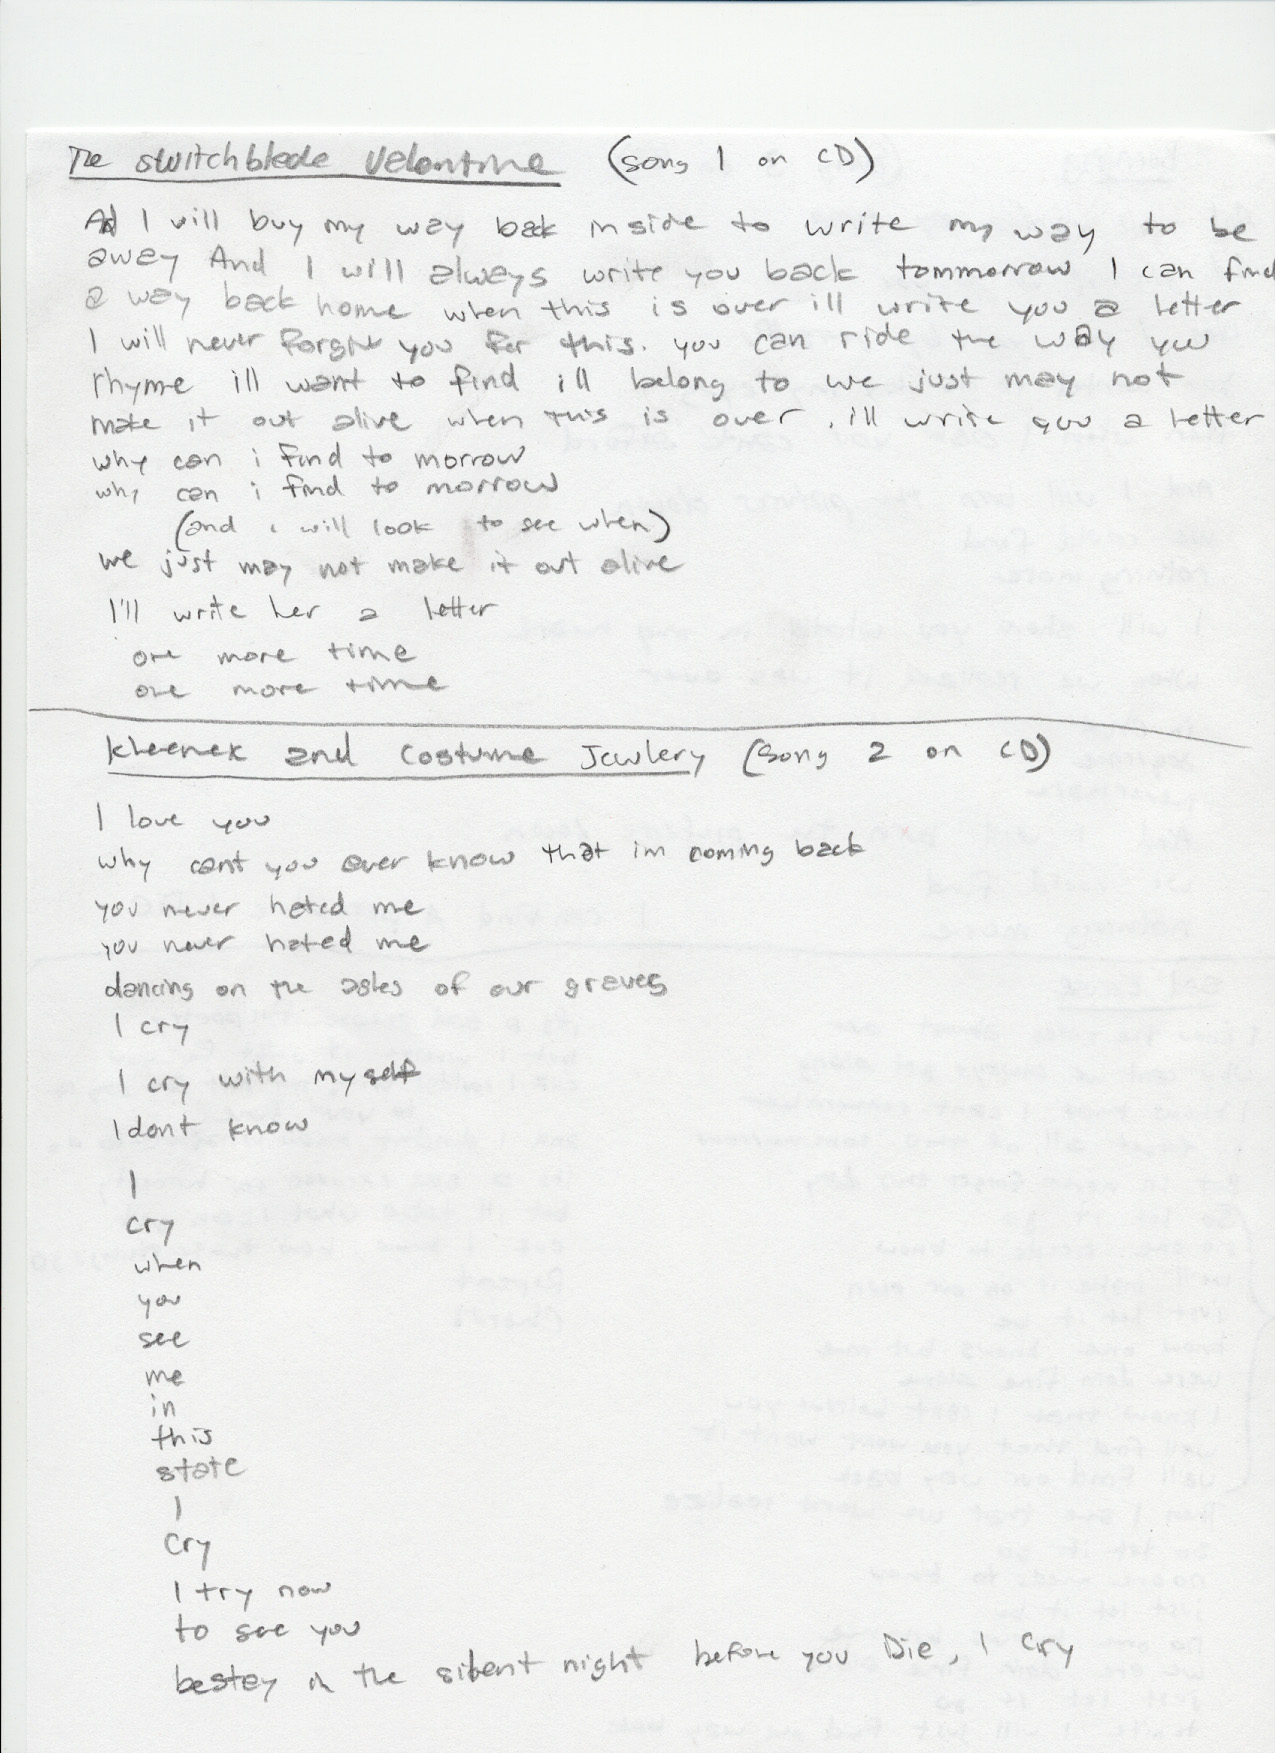 The switchblade Velentine (song 1 on CD)
And I will buy my way back inside to write my way to be
away And I will always write you back tommorrow I can find
a way back home when this is over ill write you a letter
I will never forgive you for this. you can ride the way you
rhyme ill want to find ill belong to we just may not
make it out alive when this is over, ill write you a letter
why can i find to morrow
why can i find to morrow
(and i will look to see when)
we just may not make it out alive
I'll write her a letter
one more time
one more time
Kleenex and Costume Jewlery (Song 2 on CD)
I love you
why cant you ever know that im coming back
you never hated me
you never hated me
dancing on the ashes of our graves
I cry
I cry with myself
I dont know
I
cry
when
you
see
me
in
this
state
I
cry
I try now
to see you
in the silent night before you Die, I cry